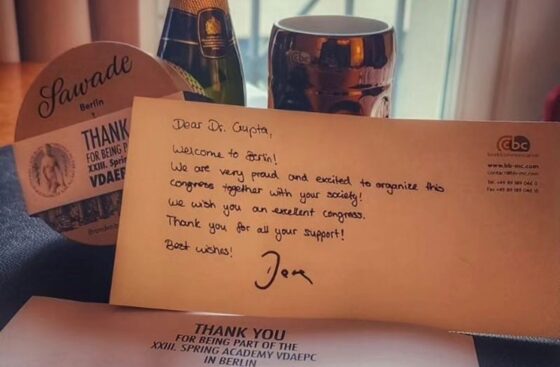 Sawade
Berlin
THANK
FOR BEING PAR
XXIII. Spring
VDAEP
Dear Dr. Gupta,
Welcome to Berlin!
We are very proud and excited to organize this
congress together with your society!
We wish you an excellent congress.
Thank you for all your support!
Best wishes!
cbc
www.bb-mc.com
THANK YOU
FOR BEING PART OF THE
XXIII. SPRING ACADEMY VDAEPC
IN BERLIN